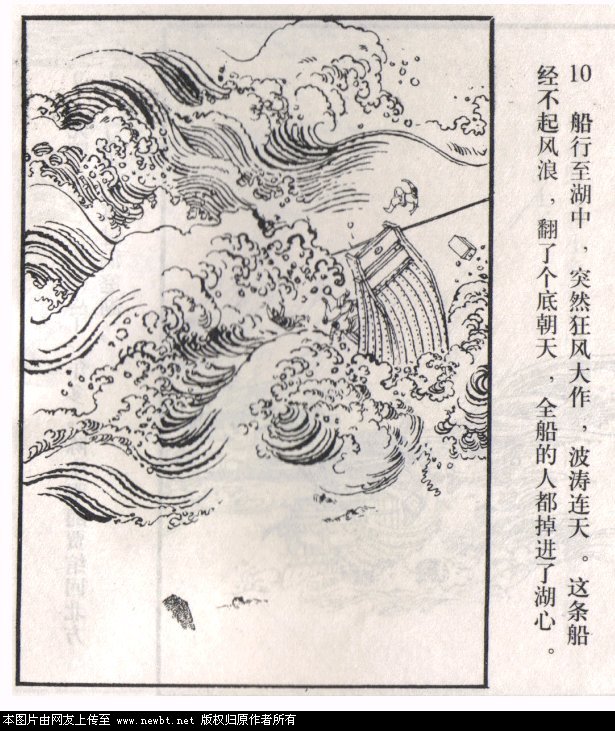 10 船行至湖中，突然狂风大作，波涛连天。这条船
经不起风浪，翻了个底朝天，全船的人都掉进了湖心。
本图片由网友上传至 www.newbt.net 版权归原作者所有